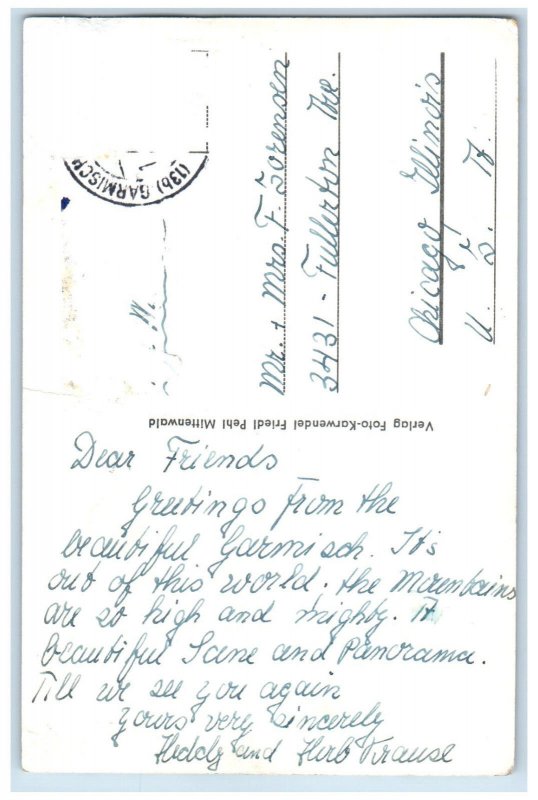 (13b) GARMISCH
Mr. + Mrs. F. Sorensen
3431 - Fullerton Ave.
Chicago Illinois
U. S. A.
Verlag Foto-Karwendel Friedl Pehl Mittenwald
Dear Friends
Greetings from the
beautiful Garmisch. It's
out of this world. the Mountains
are so high and mighty. A
beautiful Scene and Panorama.
Till we see you again
Yours very sincerely
Heddy and Herb Krause